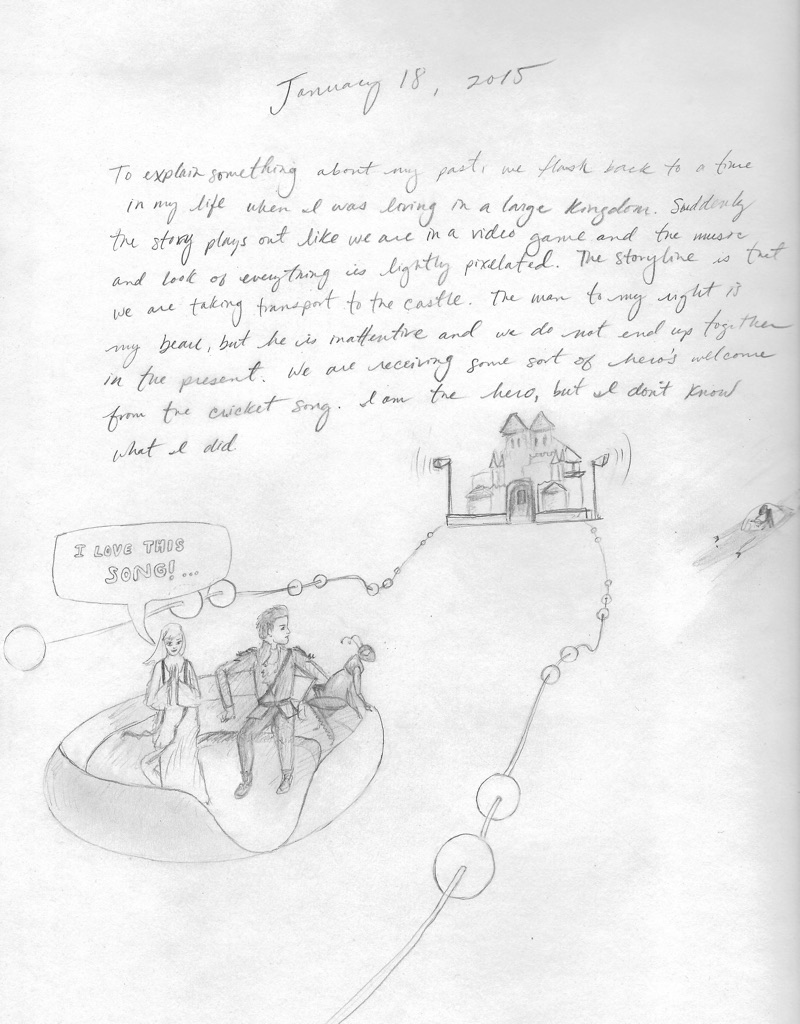 January 18, 2015
To explain something about my past, we flash back to a time
in my life when I was living in a large kingdom. Suddenly
the story plays out like we are in a video game and the music
and look of everything is lightly pixelated. The storyline is that
we are taking transport to the castle. The man to my right is
my beau, but he is inattentive and we do not end up together
in the present. We are receiving some sort of hero's welcome
from the cricket song. I am the hero, but I don't know
what I did.
I LOVE THIS
SONG!...